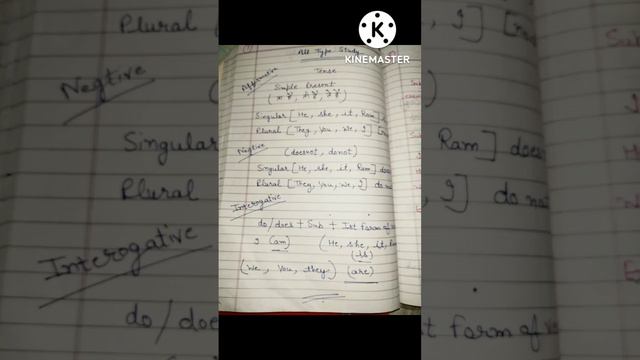 KINEMASTER
All Type Study
Tense
Affirmative
Simple Present
Singular [He, she, it, Ram]
Plural [They, You, We, I]
Negtive
(doesnot, donot)
Singular [He, she, it, Ram] does
Plural [They, You, We, I] do no
Interogative
do/does + Sub + Ist form of
I (am) (He, she, it, R
(is)
(We, You, they) (are)
Plural
Negtive
Singular
Plural
Interogative
do/does
Ram] does
I] do not
st form of v